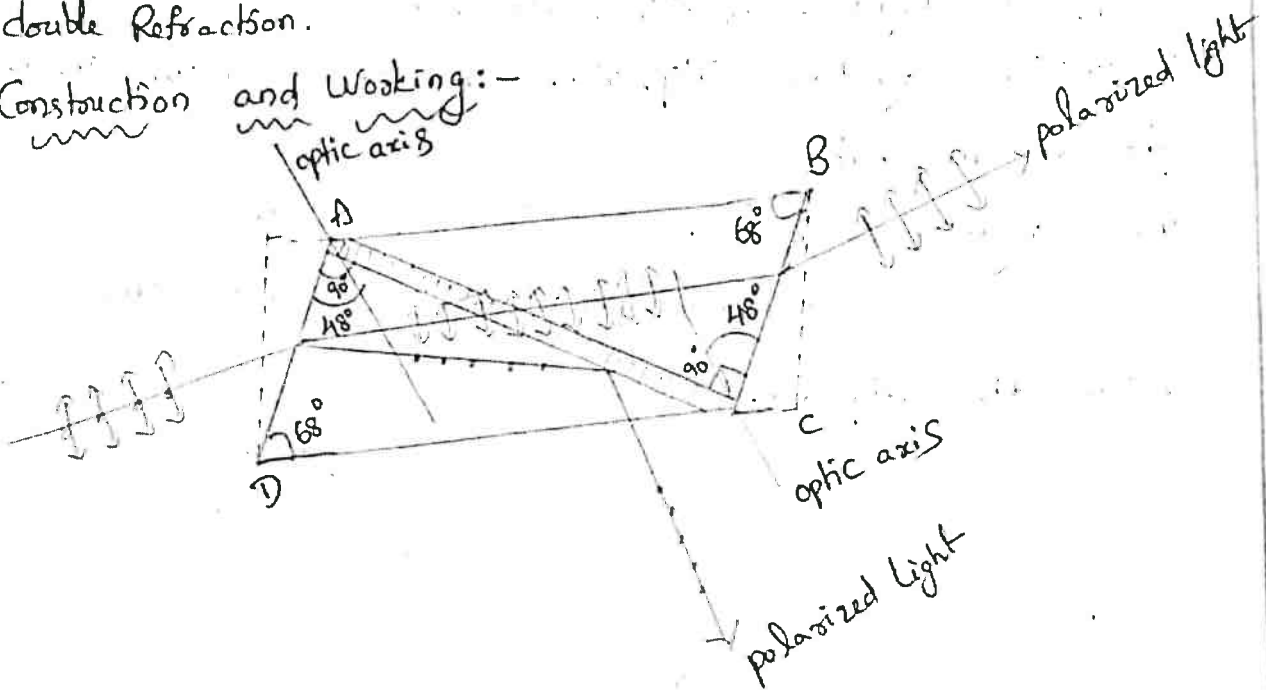 double Refraction.
Construction and Working:-
optic axis
polarized light
A
B
68°
90°
48°
48°
90°
68°
C
D
optic axis
polarized light